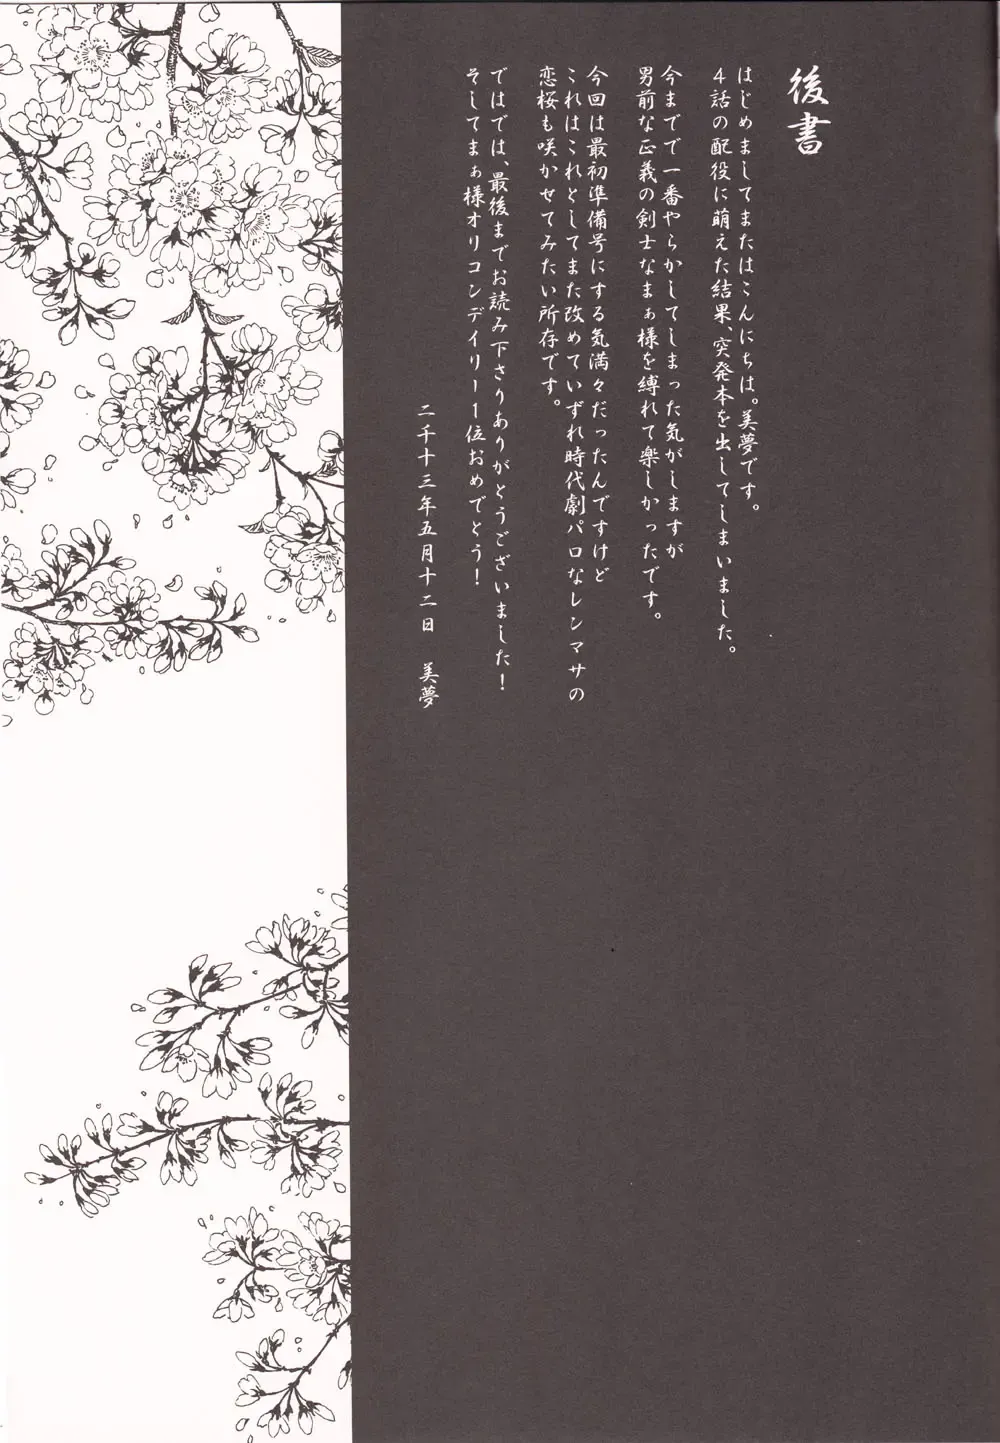 後書
はじめましてまたはこんにちは。美夢です。
4話の配役に萌えた結果、突発本を出してしまいました。
今までで一番やらかしてしまった気がしますが
男前な正義の剣士なまぁ様を縛れて楽しかったです。
今回は最初準備号にする気満々だったんですけど
これはこれとしてまた改めていずれ時代劇パロなレンマサの
恋桜も咲かせてみたい所存です。
ではでは、最後までお読み下さりありがとうございました!
そしてまぁ様オリコンデイリー1位おめでとう!
二千十三年五月十二日 美夢